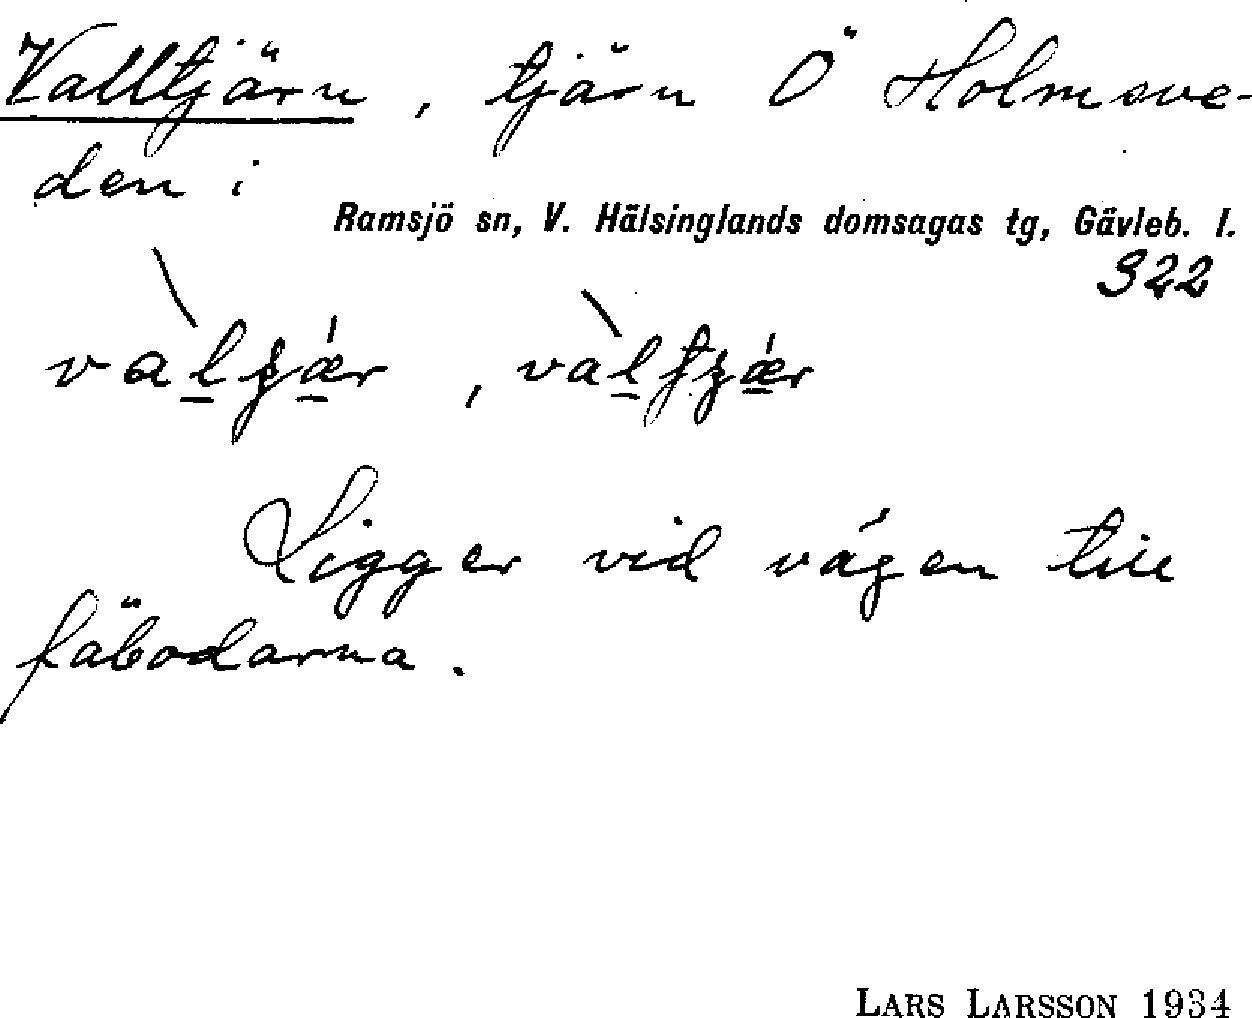 Valltjärn, tjärn Ö Holmsve-
den i
Ramsjö sn, V. Hälsinglands domsagas tg, Gävleb. l.
322
Ligger vid vägen till
fäbodarna.
LARS LARSSON 1934